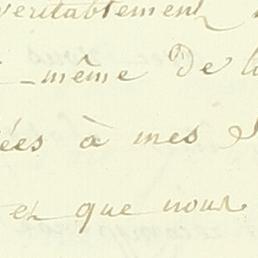 veritablement
même de la
ées à mes
et que nous